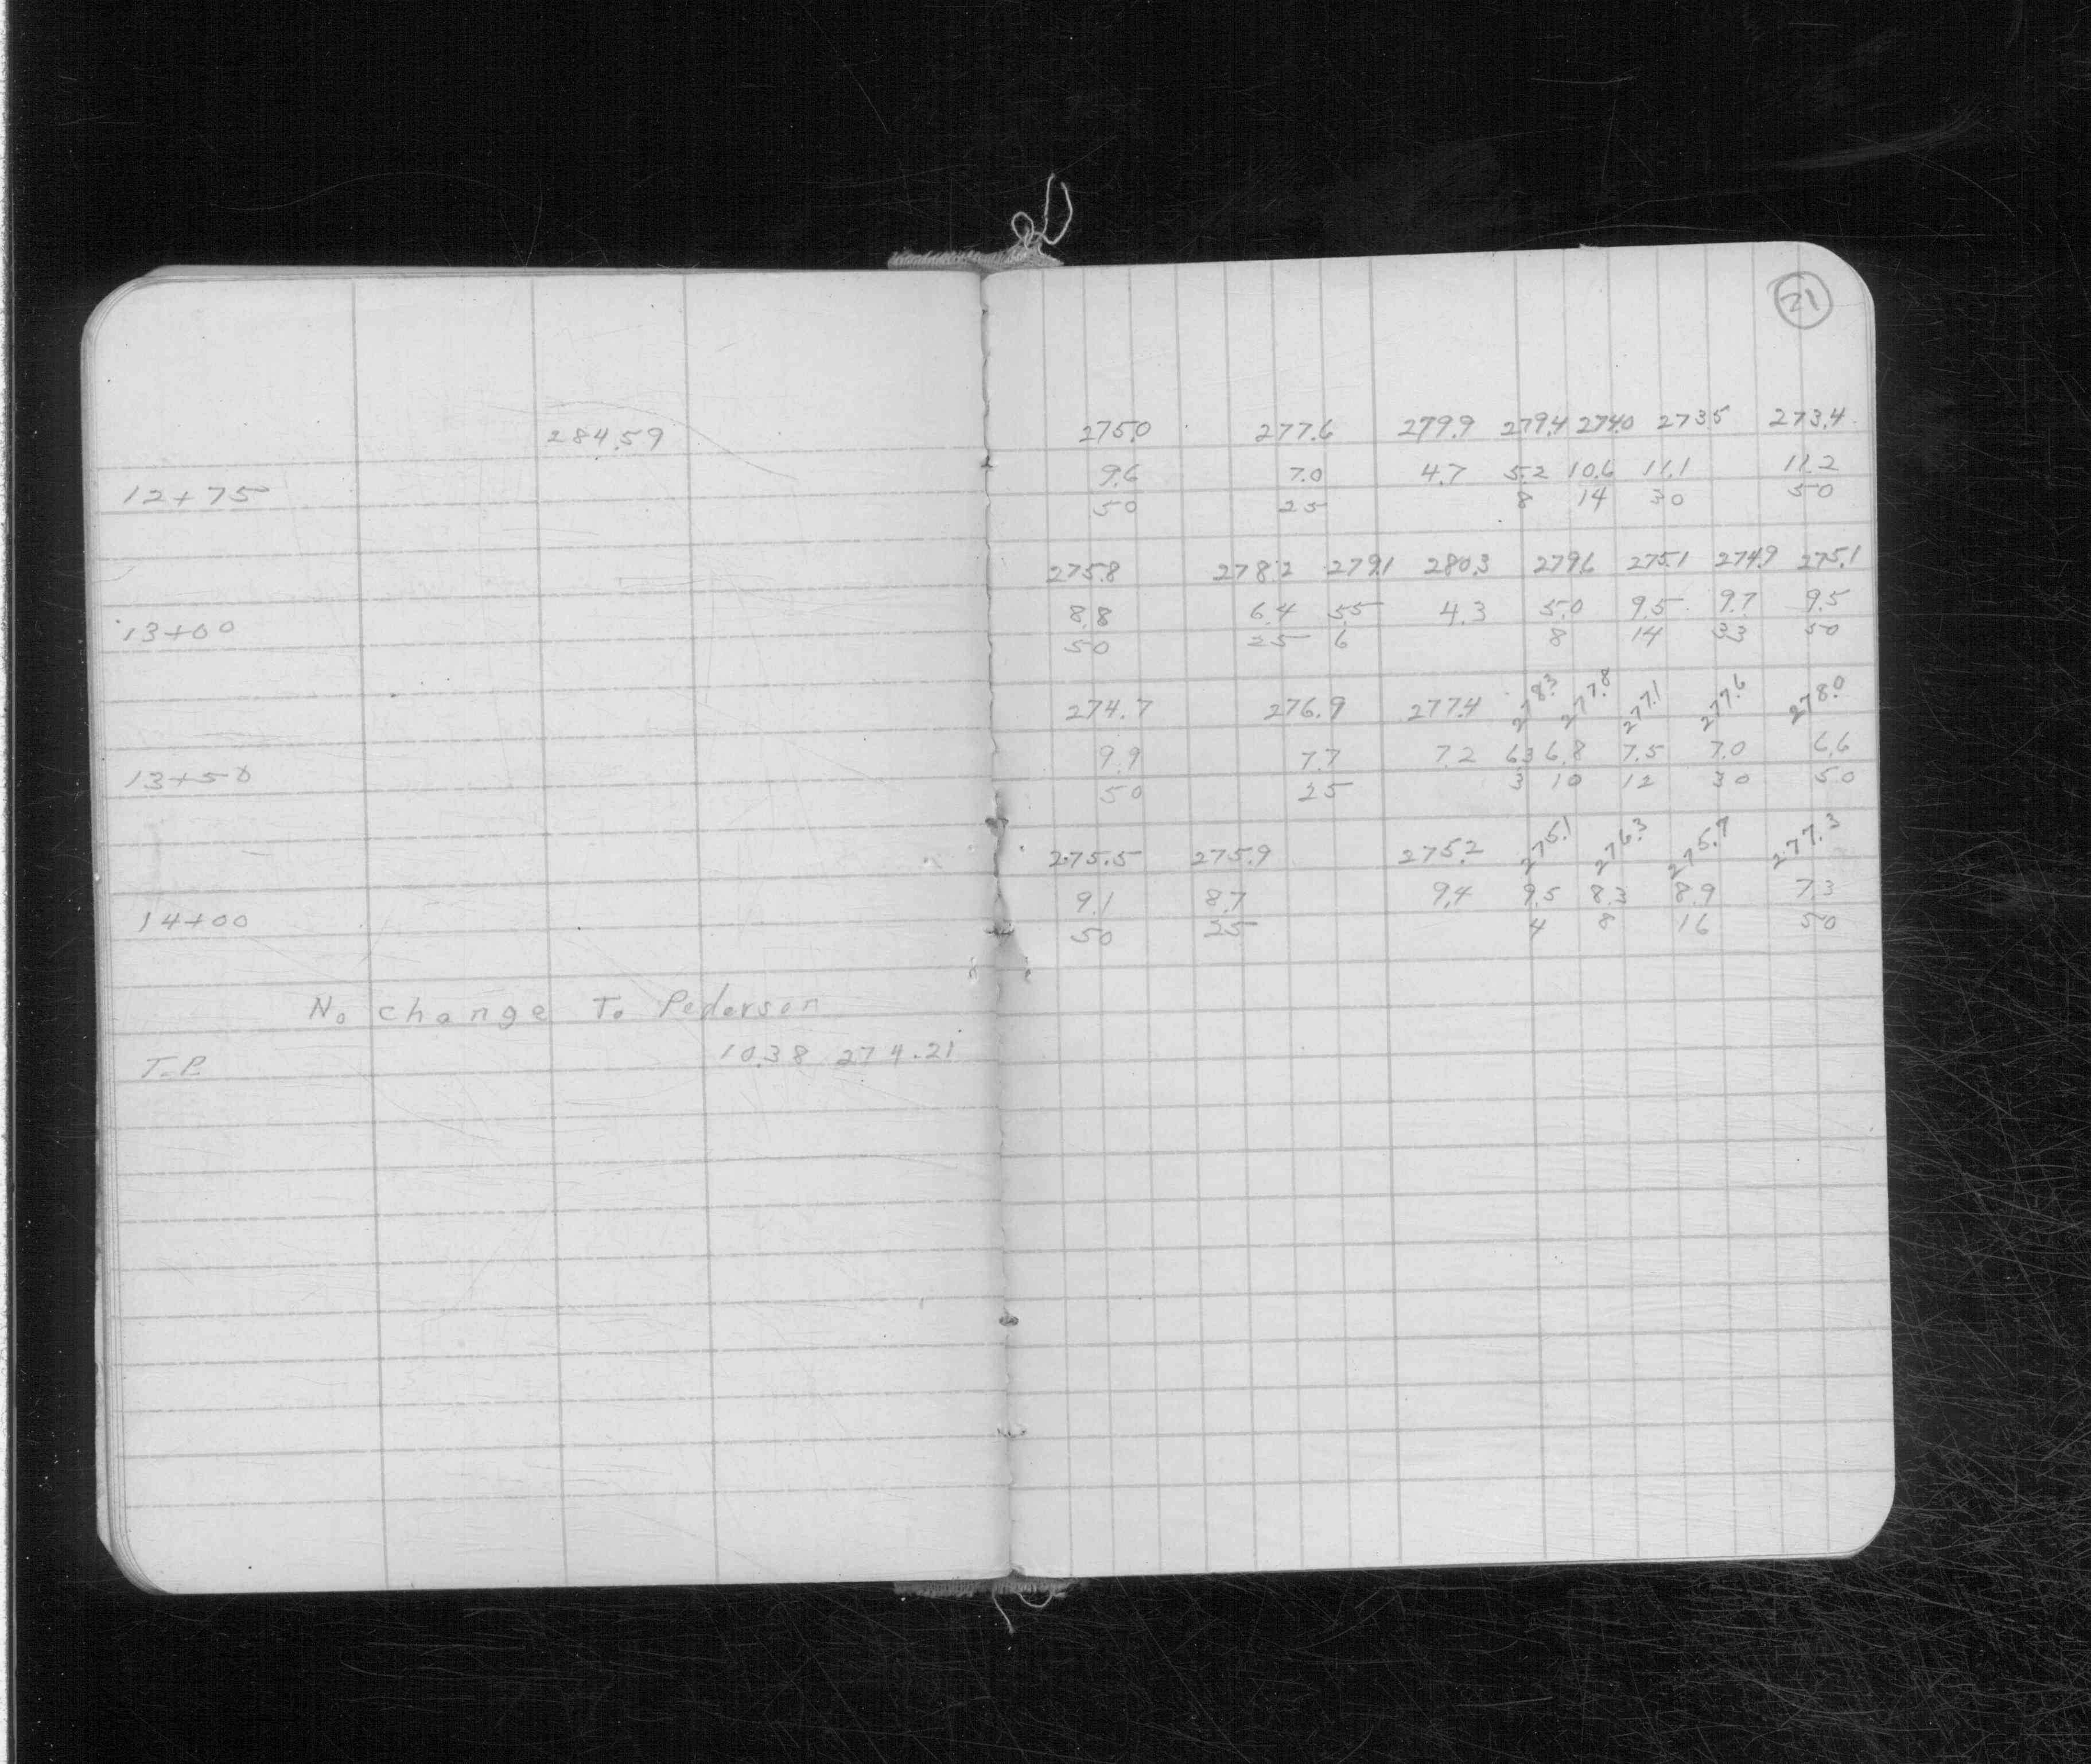 21
284.59
275.0 277.6 279.9 279.4 274.0 273.5 273.4
9.6 7.0 4.7 5.2 10.6 11.1 11.2
12+75 50 25 8 14 30 50
275.8 278.2 279.1 280.3 279.6 275.1 274.9 275.1
8.8 6.4 5.5 4.3 5.0 9.5 9.7 9.5
13+00 50 25 6 8 14 33 50
274.7 276.9 277.4 278.3 277.8 277.1 277.6 278.0
9.9 7.7 7.2 6.3 6.8 7.5 7.0 6.6
13+50 50 25 3 10 12 30 50
275.5 275.9 275.2 275.1 276.3 275.7 277.3
9.1 8.7 9.4 9.5 8.3 8.9 7.3
14+00 50 25 4 8 16 50
No change To Pederson
T.P. 10.38 274.21